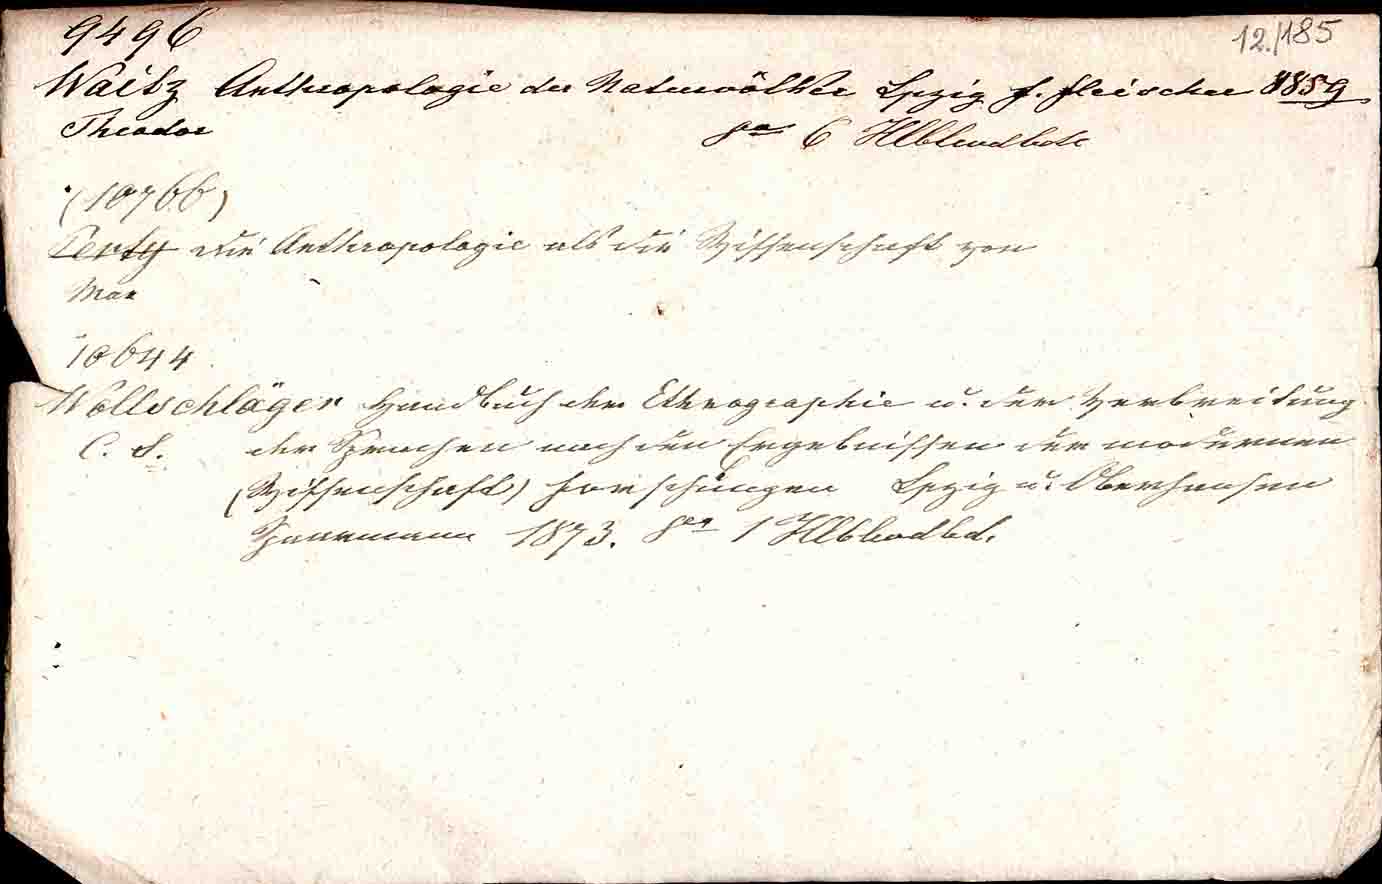 9496
12./185
Waitz Anthropologie der Naturvölker Lpzig f. Fleischer 1859
Theodor 8vo 6 Hlblwdbde
(10766)
Perty die Anthropologie als die Wissenschaft von
Max
10644
Wollschläger Handbuch der Ethnographie u. der Verbreitung
C. S. der Sprachen nach den Ergebnissen der modernen
(Wissenschaft) Forschungen Lpzig u. Oberhausen
Spaarmann 1873. 8vo 1 Hlblwdbd.